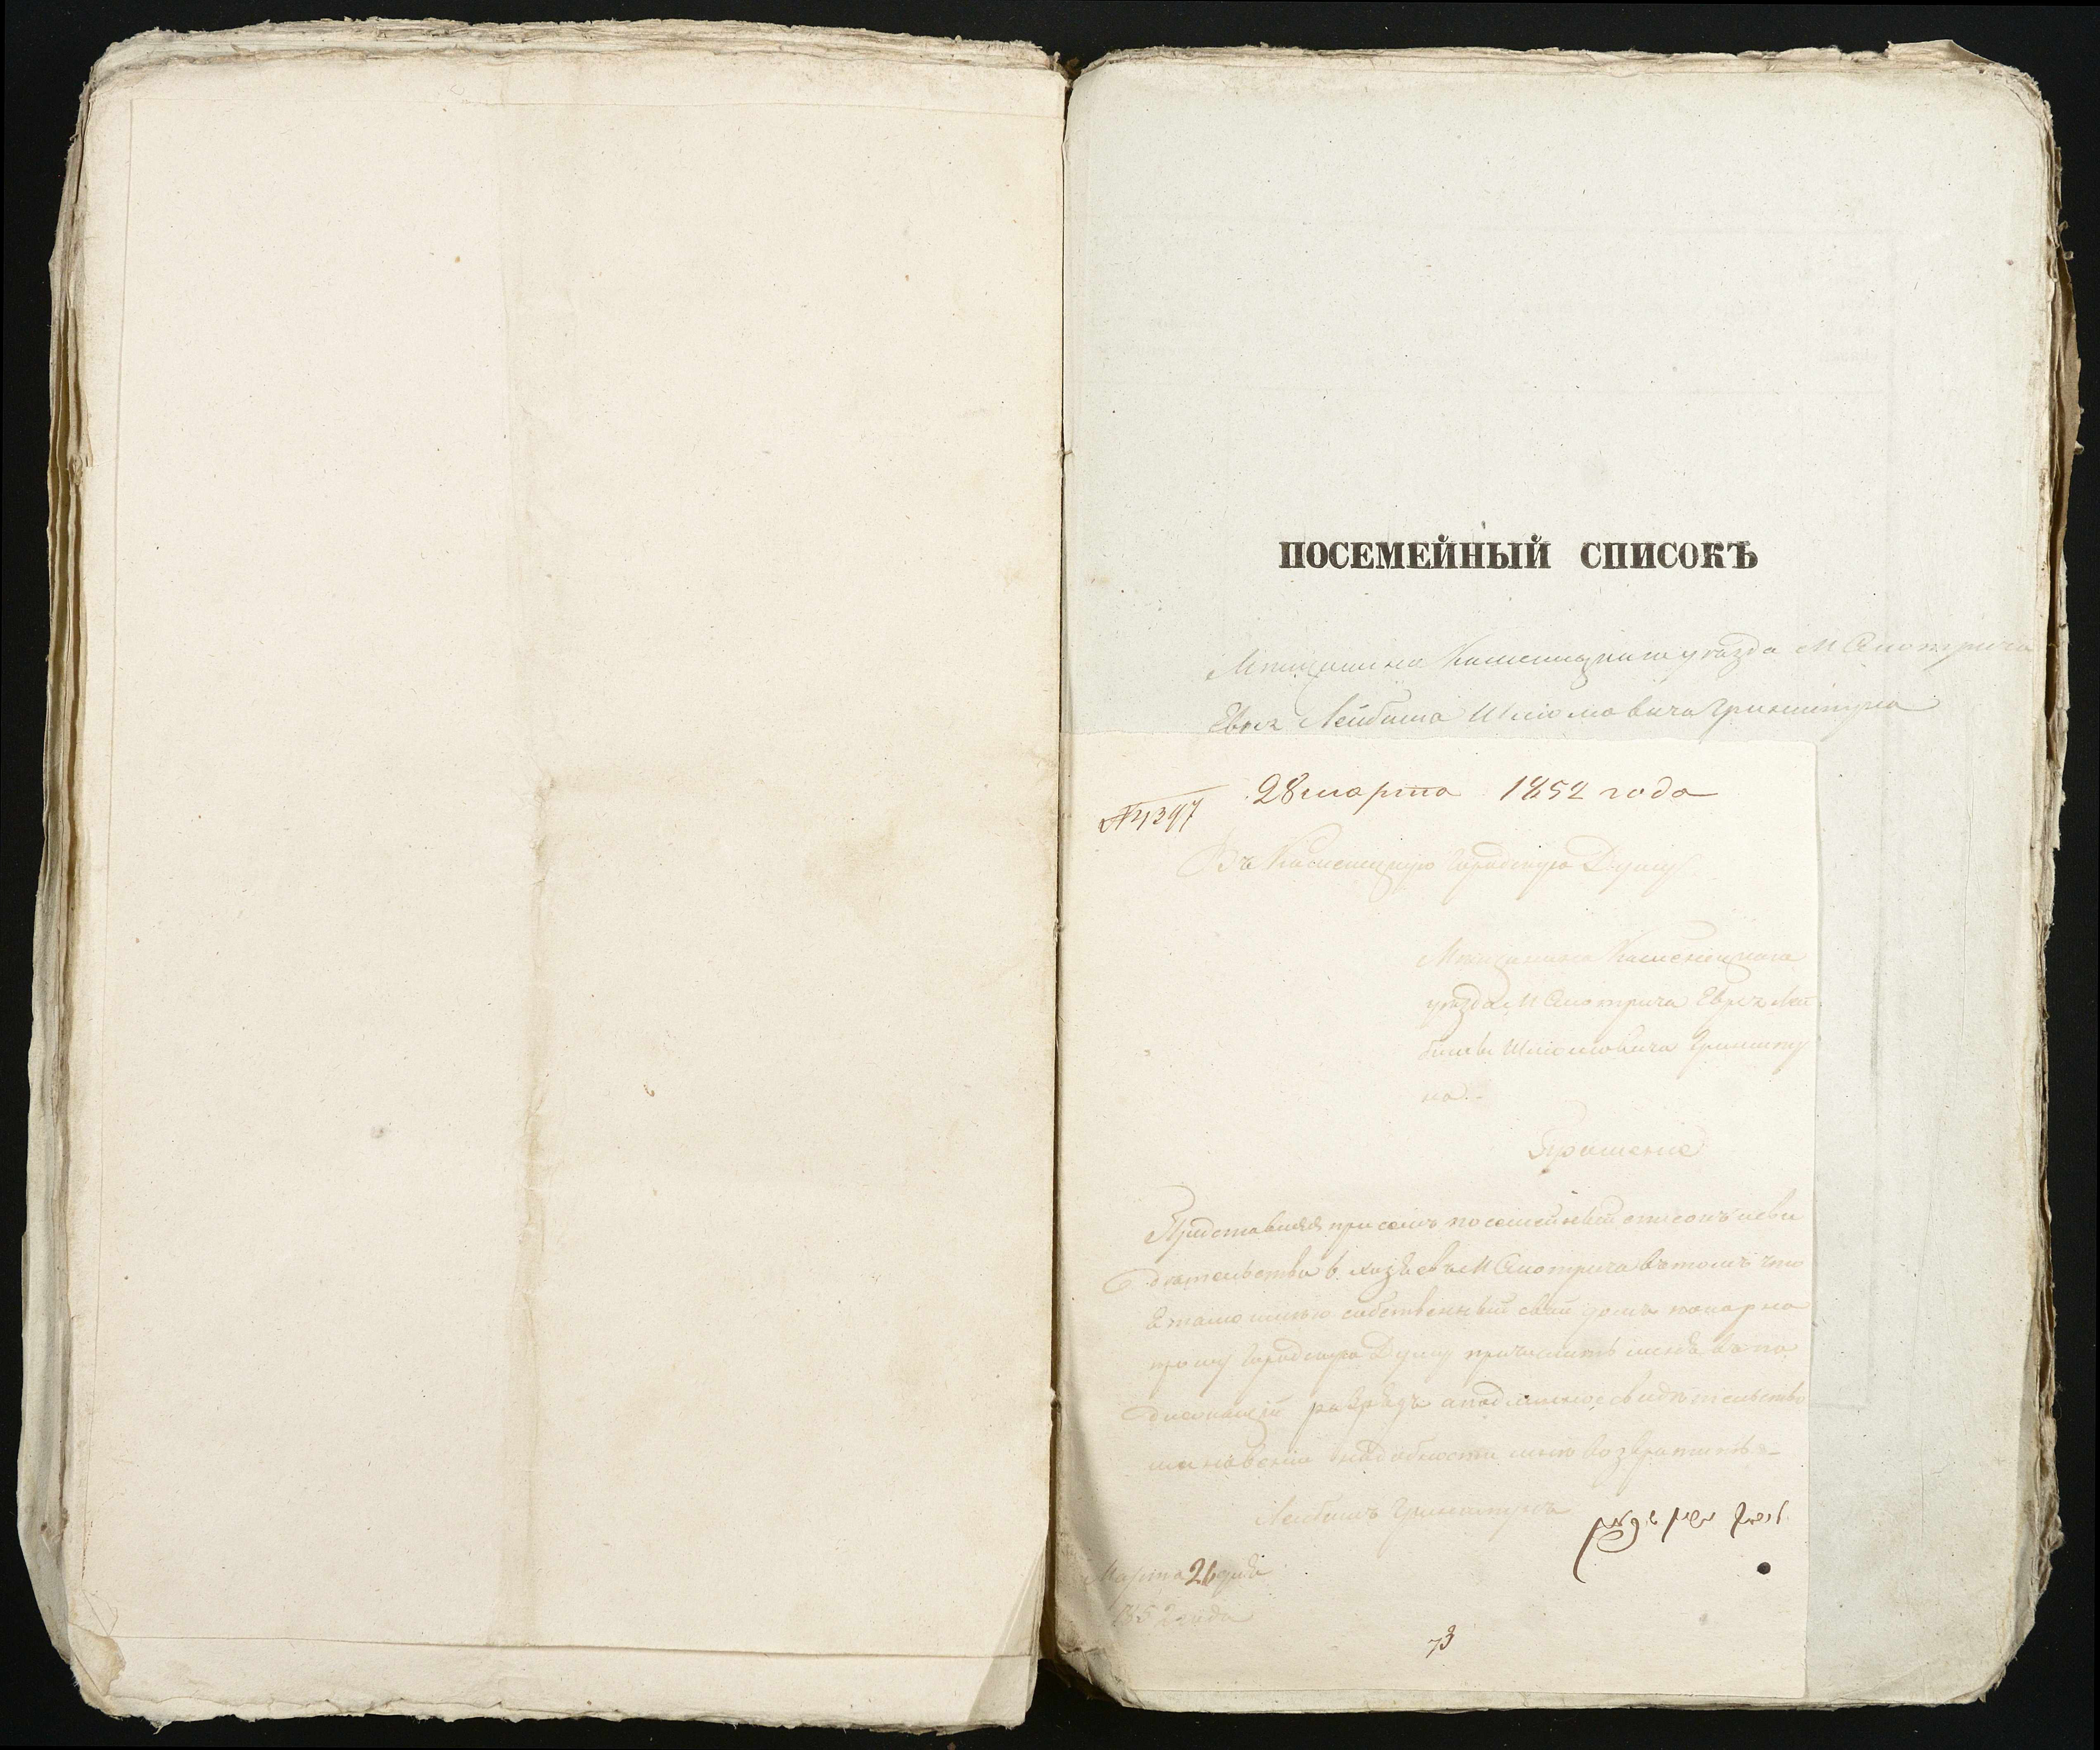 ПОСЕМЕЙНЫЙ СПИСОКЪ
Мѣщанина Каменецкаго уѣзда М Смотрича
Еврея Лейбиша Шліомовича Гринштуна
28 марта 1852 года
№ 4397
Въ Каменецкую Городскую Думу
Мѣщанина Каменецкаго
уѣзда М Смотрича Еврея Лей
биша Шліомовича Гриншту
на.-
Прошеніе
Представляя при семъ посемейный списокъ и сви
дѣтельство 6. хозяевъ М Смотрича въ томъ что
я тамо имѣю собственный свой домъ покорно
прошу Городскую Думу причислить меня въ по
длежащій разрядъ а подлинное свидѣтельство
надобности мнѣ возвратить.-
Лейбишъ Гринштунъ
Марта 26 дня
1852 года
73